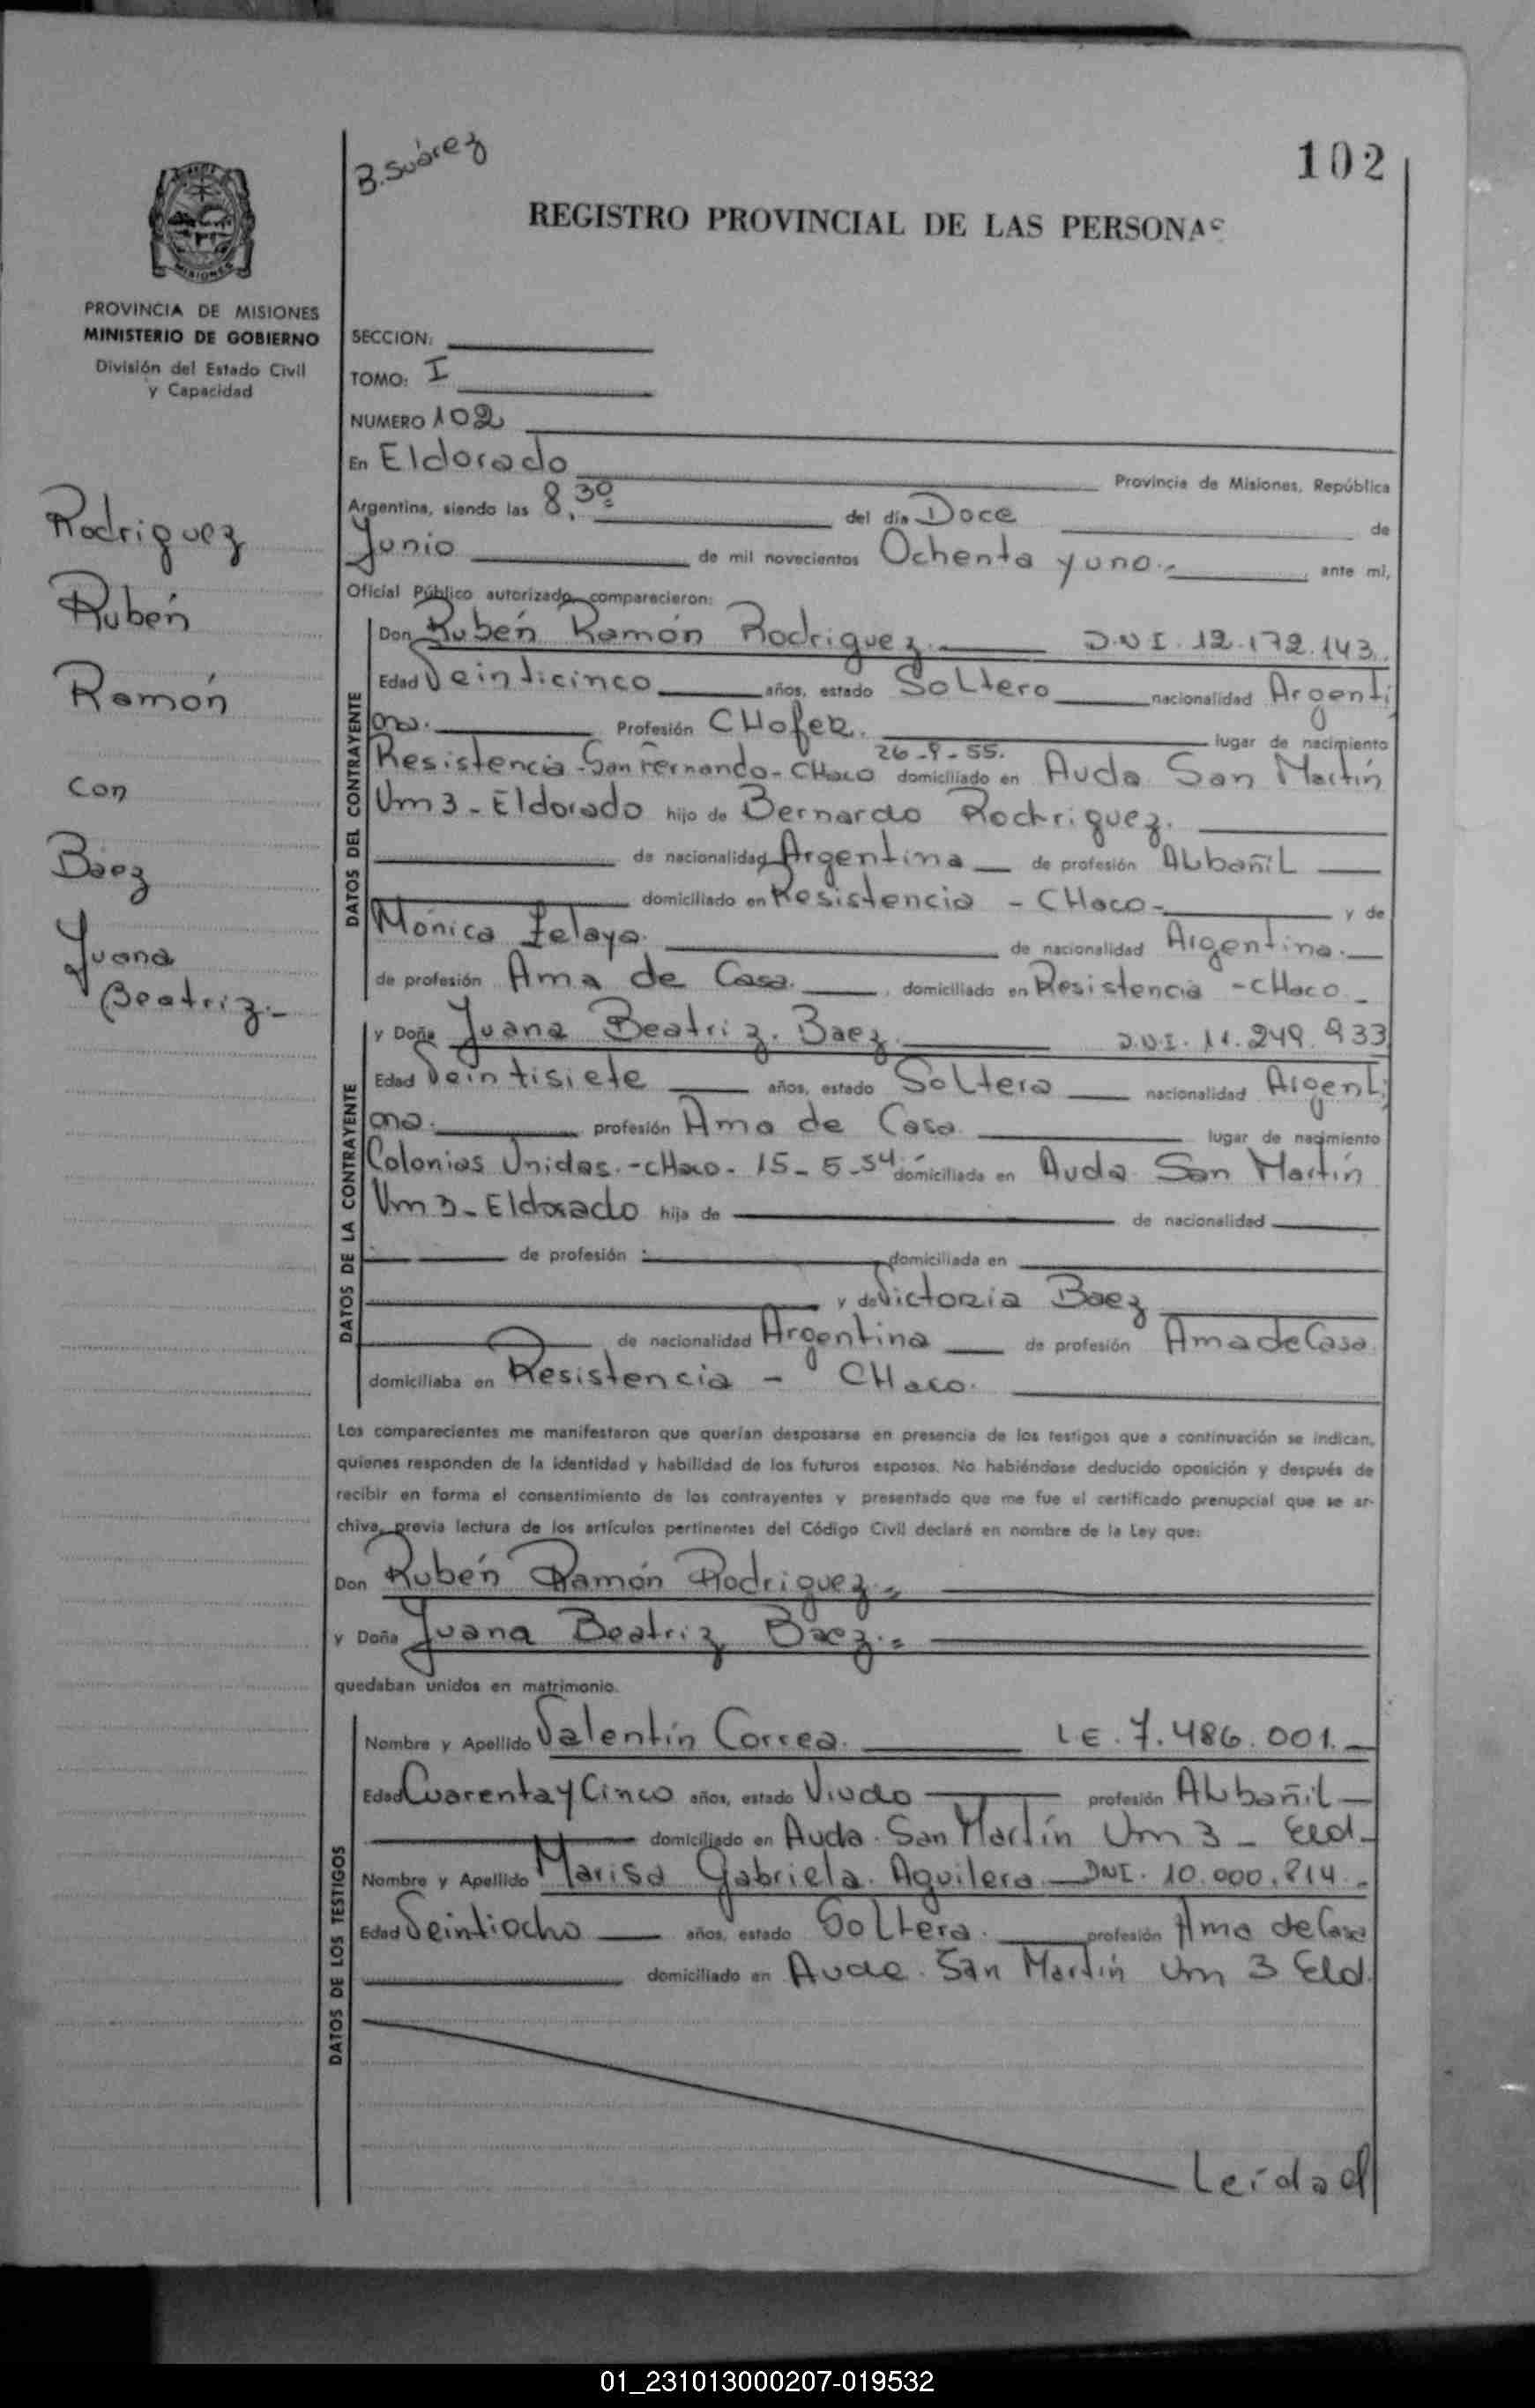 102
B. Suárez
REGISTRO PROVINCIAL DE LAS PERSONAS
MISIONES
PROVINCIA DE MISIONES
MINISTERIO DE GOBIERNO
División del Estado Civil
y Capacidad
Rodriguez
Rubén
Ramón
con
Báez
Juana
Beatriz.-
SECCION:
TOMO: I
NUMERO 102
En Eldorado Provincia de Misiones, República
Argentina, siendo las 8,30 del día Doce de
Junio de mil novecientos Ochenta y uno.- ante mí,
Oficial Público autorizado, comparecieron:
DATOS DEL CONTRAYENTE
Don Rubén Ramón Rodriguez. D.N.I. 12.172.143.
Edad Veinticinco años, estado Soltero nacionalidad Argenti
na. Profesión CHofer. lugar de nacimiento
Resistencia - San Fernando - CHaco 26-9-55. domiciliado en Avda San Martín
Um 3 - Eldorado hijo de Bernardo Rodriguez.
de nacionalidad Argentina de profesión Albañil
domiciliado en Resistencia - CHaco - y de
Mónica Zelaya. de nacionalidad Argentina.
de profesión Ama de Casa. , domiciliada en Resistencia - CHaco -
DATOS DE LA CONTRAYENTE
y Doña Juana Beatriz. Baez. D.N.I. 11.249.933
Edad Veintisiete años, estado Soltera nacionalidad Argenti
na. profesión Ama de Casa. lugar de nacimiento
Colonias Unidas. - CHaco - 15-5-54 domiciliada en Avda San Martín
Um 3 - Eldorado hija de de nacionalidad
de profesión domiciliada en
y de Victoria Baez
de nacionalidad Argentina de profesión Ama de Casa.
domiciliaba en Resistencia - CHaco.
Los comparecientes me manifestaron que querían desposarse en presencia de los testigos que a continuación se indican,
quienes responden de la identidad y habilidad de los futuros esposos. No habiéndose deducido oposición y después de
recibir en forma el consentimiento de los contrayentes y presentado que me fue el certificado prenupcial que se ar-
chiva, previa lectura de los artículos pertinentes del Código Civil declaré en nombre de la Ley que:
Don Rubén Ramón Rodriguez.=
y Doña Juana Beatriz Baez.=
quedaban unidos en matrimonio.
DATOS DE LOS TESTIGOS
Nombre y Apellido Valentín Correa. L.E. 7.486.001.
Edad Cuarenta y Cinco años, estado Viudo profesión Albañil
domiciliado en Avda. San Martín Um 3 - Eld.
Nombre y Apellido Marisa Gabriela. Aguilera DNI. 10.000.814.
Edad Veintiocho años, estado Soltera. profesión Ama de Casa
domiciliado en Avda. San Martín Um 3 Eld.
Leída el
01_231013000207-019532